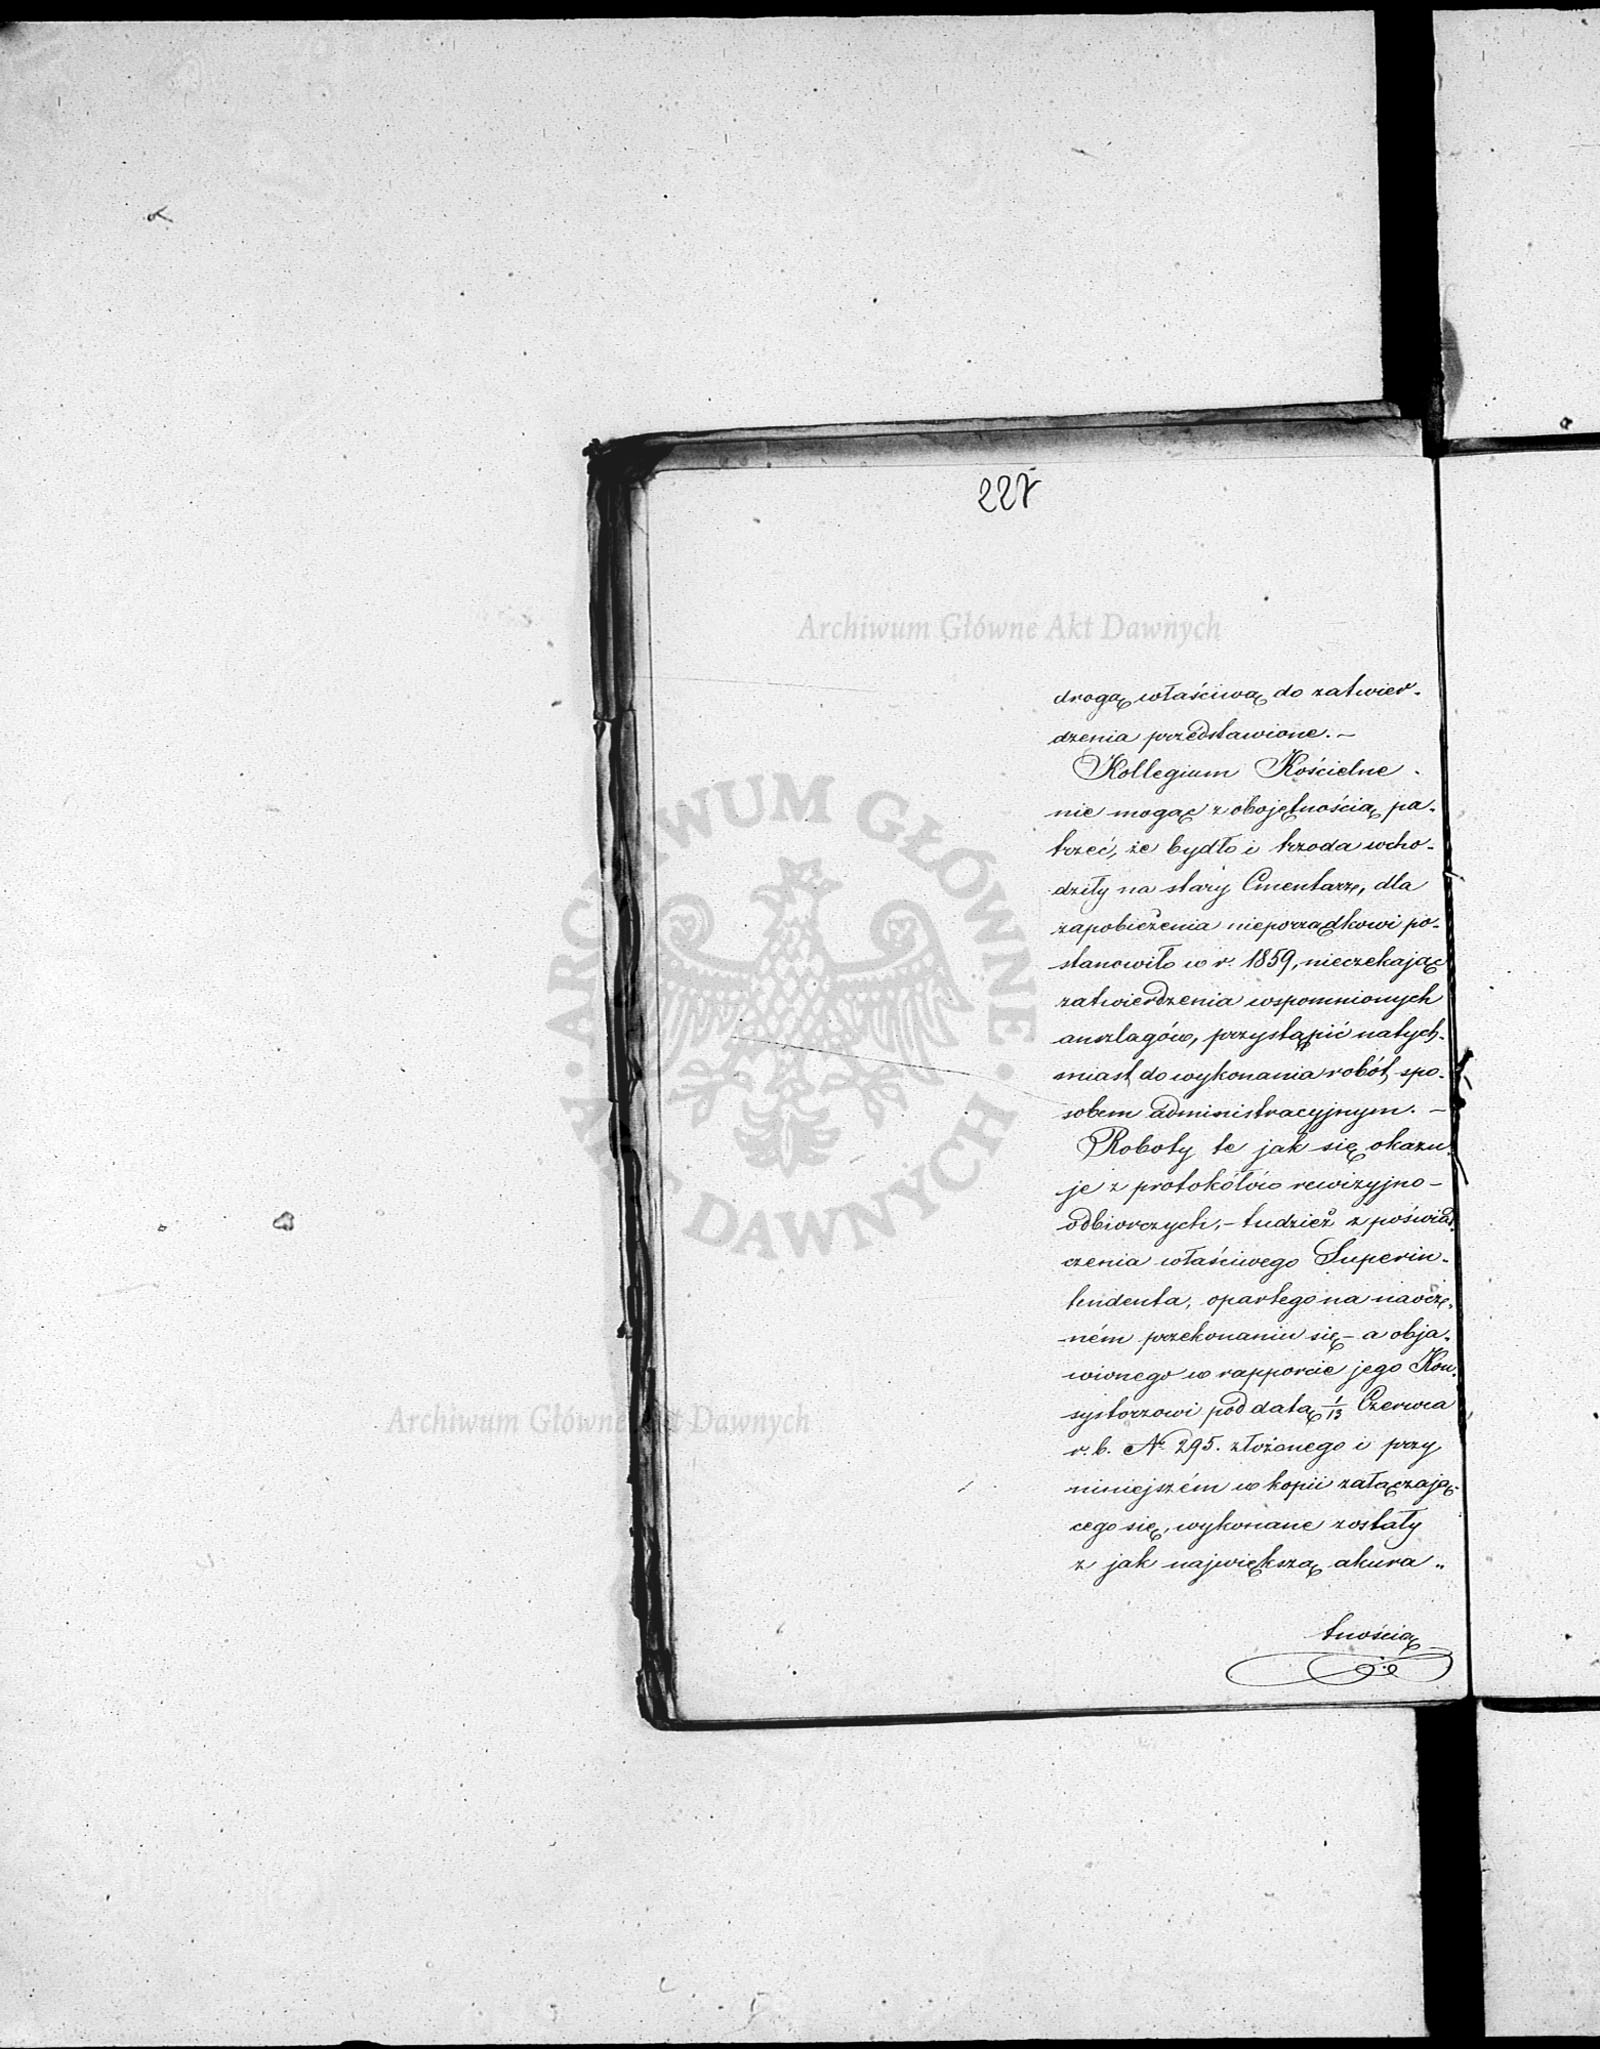 227
Archiwum Główne Akt Dawnych
drogą właściwą do zatwier-
dzenia przedstawione. -
Kollegium Kościelne
nie mogąc z obojętnością pa-
trzeć, że bydło i trzoda wcho-
dziły na stary Cmentarz, dla
zapobieżenia nieporządkowi po-
stanowiło w r. 1859, nieczekając
zatwierdzenia wspomnionych
anszlagów, przystąpić natych-
miast do wykonania robót, spo-
sobem administracyjnym. -
Roboty te jak się okazu-
je z protokółów rewizyjno-
odbiorczych, - tudzież z poświad-
czenia właściwego Superin-
tendenta, opartego na naocz-
ném przekonaniu się - a obja-
wionego w rapporcie jego Kon-
systorzowi pod datą 1/13 Czerwca
r. b. No 295. złożonego i przy
niniejszém w kopii załączają-
cego się, wykonane zostały
z jak największą akura-
tnością
ARCHIWUM GŁÓWNE · AKT DAWNYCH ·
Archiwum Główne Akt Dawnych